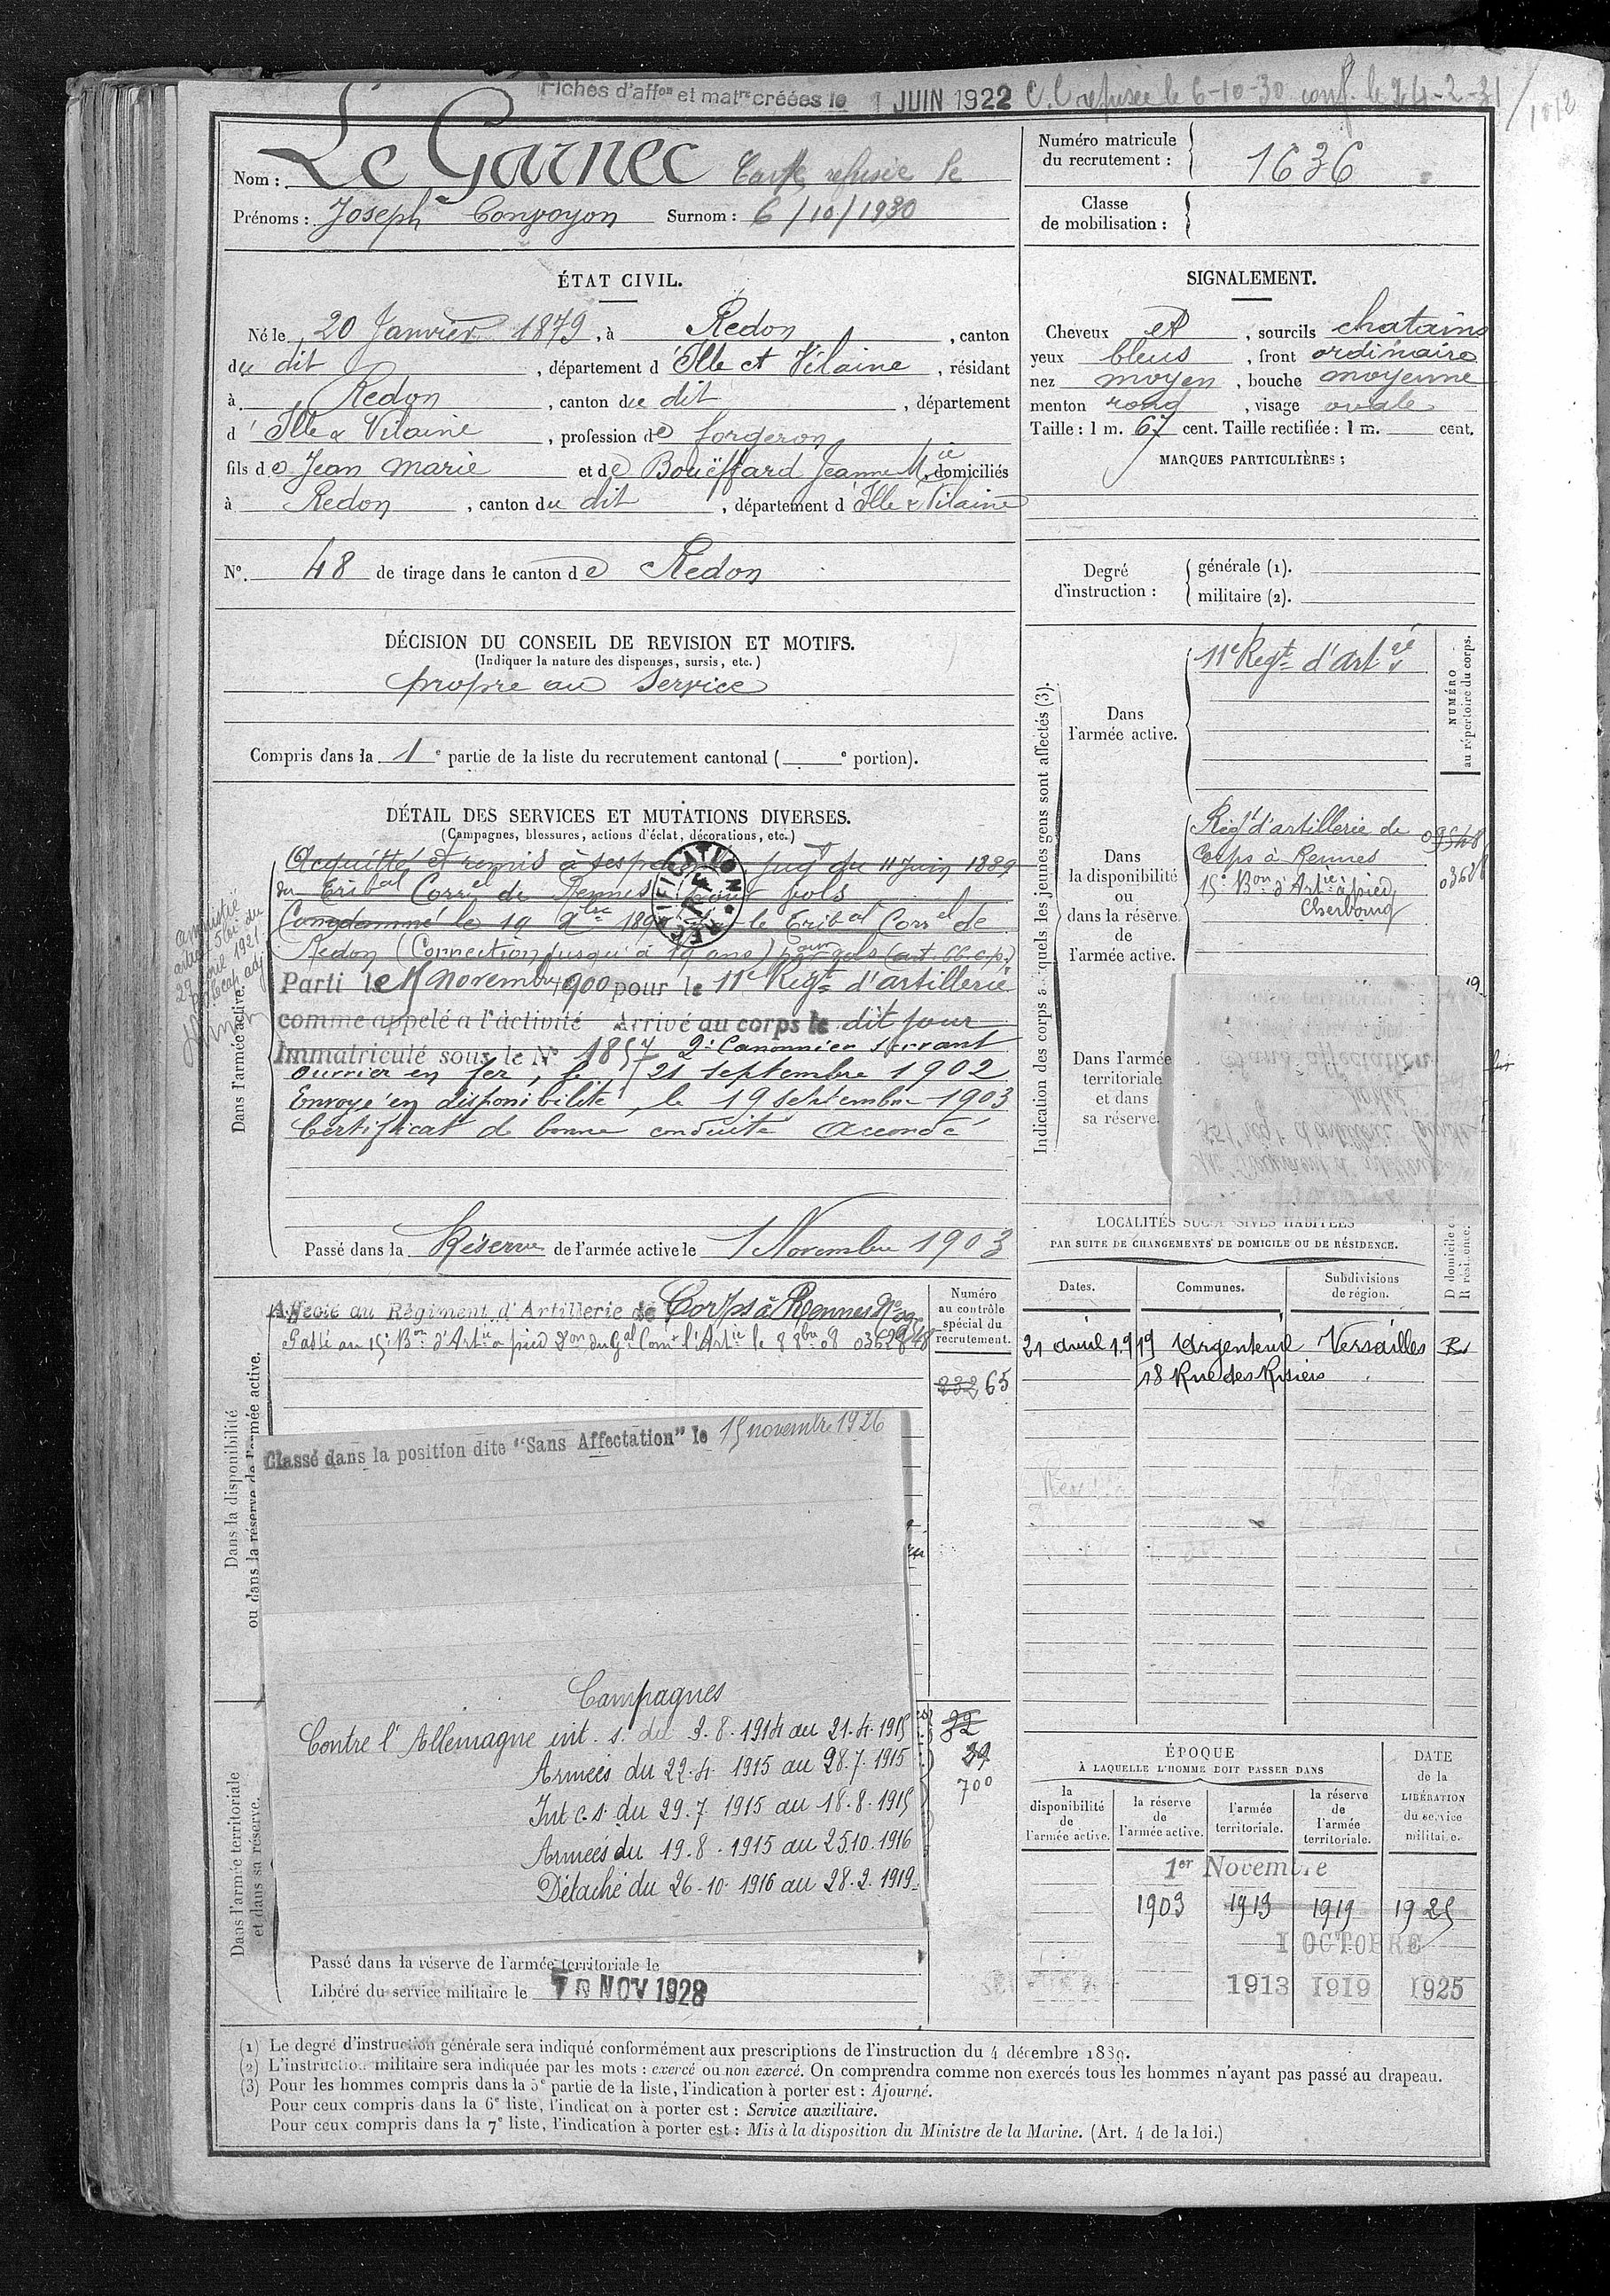 Fiches d'affon et matre créées le 1 JUIN 1922 C.C refusée le 6-10-30 conf. le 24-2-31
1012
Nom : Le Garnec Carte refusée le
Prénoms : Joseph Convoyon Surnom : 6/10/1930
Numéro matricule du recrutement : 1636
Classe de mobilisation :
ÉTAT CIVIL.
Né le 20 Janvier 1879, à Redon, canton
du dit, département d'Ille et Vilaine, résidant
à Redon, canton du dit, département
d'Ille & Vilaine, profession de forgeron
fils de Jean Marie et de Bouëffard Jeanne Mie, domiciliés
à Redon, canton du dit, département d'Ille & Vilaine
N°. 48 de tirage dans le canton de Redon
SIGNALEMENT.
Cheveux et, sourcils chatains
yeux bleus, front ordinaire
nez moyen, bouche moyenne
menton rond, visage ovale
Taille : 1 m. 67 cent. Taille rectifiée : 1 m. cent.
MARQUES PARTICULIÈRES :
Degré d'instruction :
générale (1).
militaire (2).
DÉCISION DU CONSEIL DE REVISION ET MOTIFS.
(Indiquer la nature des dispenses, sursis, etc.)
propre au service
Compris dans la 1e partie de la liste du recrutement cantonal ( e portion).
DÉTAIL DES SERVICES ET MUTATIONS DIVERSES.
(Campagnes, blessures, actions d'éclat, décorations, etc.)
Acquitté et remis à ses jugt du 11 Juin 1889
du Tribal Correl de Rennes pour vols
Condamné le 19 le Tribal Correl de
Redon (Correction jusqu'à 19 ans) pour vols (art. 66 c.p.)
RECTIFICATION
amnistié
27 avril 1921
Dans l'armée active.
Parti le 17 novembre 1900 pour le 11e Regt d'artillerie
comme appelé à l'activité Arrivé au corps le dit jour
Immatriculé sous le N° 1857 2e Canonnier servant
ouvrier en fer, le 21 septembre 1902
Envoyé en disponibilité, le 19 septembre 1903
Certificat de bonne conduite accordé
Passé dans la Réserve de l'armée active le 1 Novembre 1903
Indication des corps auxquels les jeunes gens sont affectés (3).
NUMÉRO au répertoire du corps.
Dans l'armée active.
11e Regt d'artie
Dans la disponibilité ou dans la réserve de l'armée active.
Régt d'artillerie de
Corps à Rennes
15e Bon d'Artie à pied
Cherbourg
09548
03628
Dans l'armée territoriale et dans sa réserve.
LOCALITÉS SUCCESSIVES HABITÉES
PAR SUITE DE CHANGEMENTS DE DOMICILE OU DE RÉSIDENCE.
Dates. Communes. Subdivisions de région. D domicile R résidence.
21 avril 1919 Argenteuil Versailles R
18 Rue des Rosiers
Dans la disponibilité ou dans la réserve de l'armée active.
Affecté au Régiment d'Artillerie de Corps à Rennes No 09548
Passé au 15e Bon d'Artie à pied Don du Gal Comt l'Artie le 8 8bre 08 03628
Numéro au contrôle spécial du recrutement.
232 65
Classé dans la position dite "Sans Affectation" le 15 novembre 1926
Campagnes
Contre l'Allemagne int. s. du 3.8.1914 au 21.4.1915
Armées du 22.4.1915 au 28.7.1915
Int c.s. du 29.7.1915 au 18.8.1915
Armées du 19.8.1915 au 25.10.1916
Détaché du 26.10.1916 au 28.2.1919
32
39
700
Dans l'armée territoriale et dans sa réserve.
Passé dans la réserve de l'armée territoriale le
Libéré du service militaire le NOV 1928
ÉPOQUE
À LAQUELLE L'HOMME DOIT PASSER DANS
DATE de la LIBÉRATION du service militaire.
la disponibilité de l'armée active. la réserve de l'armée active. l'armée territoriale. la réserve de l'armée territoriale.
1er Novembre
1903 1913 1919 1925
1 OCTOBRE
1913 1919 1925
(1) Le degré d'instruction générale sera indiqué conformément aux prescriptions de l'instruction du 4 décembre 1889.
(2) L'instruction militaire sera indiquée par les mots : exercé ou non exercé. On comprendra comme non exercés tous les hommes n'ayant pas passé au drapeau.
(3) Pour les hommes compris dans la 5e partie de la liste, l'indication à porter est : Ajourné.
Pour ceux compris dans la 6e liste, l'indication à porter est : Service auxiliaire.
Pour ceux compris dans la 7e liste, l'indication à porter est : Mis à la disposition du Ministre de la Marine. (Art. 4 de la loi.)